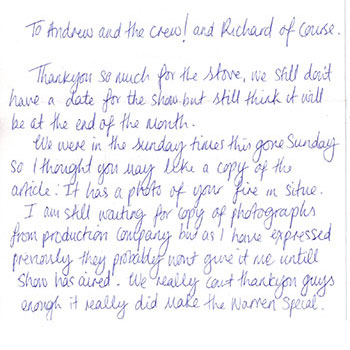 To Andrew and the crew! and Richard of Course.
Thankyou so much for the stove, we still don't
have a date for the show but still think it will
be at the end of the month.
We were in the sunday times this gone Sunday
so I thought you may like a copy of the
article. It has a photo of your fire in situe.
I am still waiting for copy of photographs
from production company but as I have expressed
previously they probably wont give it me untill
show has aired. We really cant thankyou guys
enough it really did make the Warren Special.